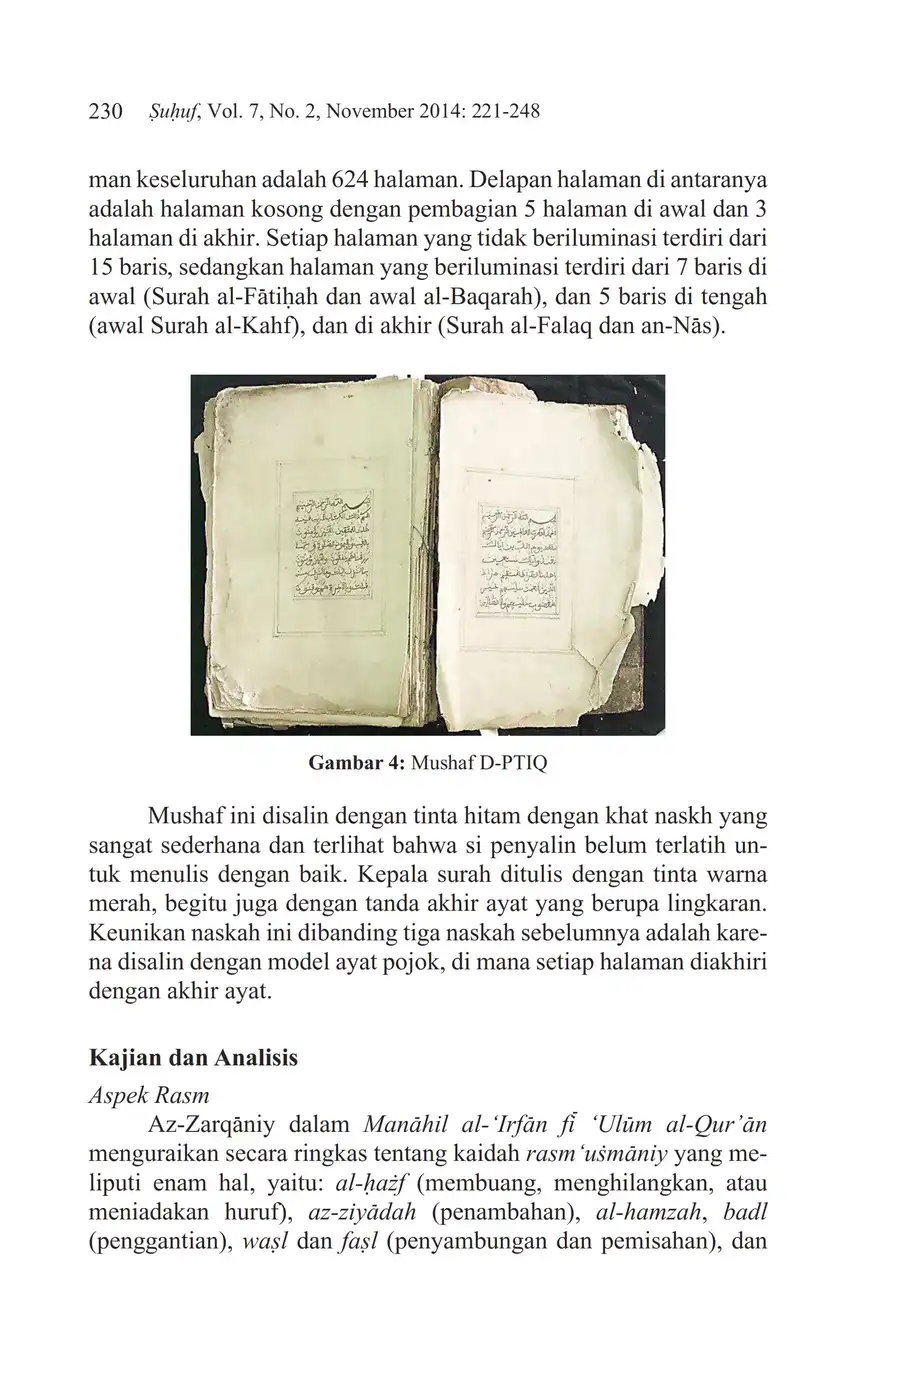 230 Ṣuḥuf, Vol. 7, No. 2, November 2014: 221-248
man keseluruhan adalah 624 halaman. Delapan halaman di antaranya
adalah halaman kosong dengan pembagian 5 halaman di awal dan 3
halaman di akhir. Setiap halaman yang tidak beriluminasi terdiri dari
15 baris, sedangkan halaman yang beriluminasi terdiri dari 7 baris di
awal (Surah al-Fātiḥah dan awal al-Baqarah), dan 5 baris di tengah
(awal Surah al-Kahf), dan di akhir (Surah al-Falaq dan an-Nās).
Gambar 4: Mushaf D-PTIQ
Mushaf ini disalin dengan tinta hitam dengan khat naskh yang
sangat sederhana dan terlihat bahwa si penyalin belum terlatih un-
tuk menulis dengan baik. Kepala surah ditulis dengan tinta warna
merah, begitu juga dengan tanda akhir ayat yang berupa lingkaran.
Keunikan naskah ini dibanding tiga naskah sebelumnya adalah kare-
na disalin dengan model ayat pojok, di mana setiap halaman diakhiri
dengan akhir ayat.
Kajian dan Analisis
Aspek Rasm
Az-Zarqāniy dalam Manāhil al-‘Irfān fī ‘Ulūm al-Qur’ān
menguraikan secara ringkas tentang kaidah rasm ‘uṡmāniy yang me-
liputi enam hal, yaitu: al-ḥażf (membuang, menghilangkan, atau
meniadakan huruf), az-ziyādah (penambahan), al-hamzah, badl
(penggantian), waṣl dan faṣl (penyambungan dan pemisahan), dan